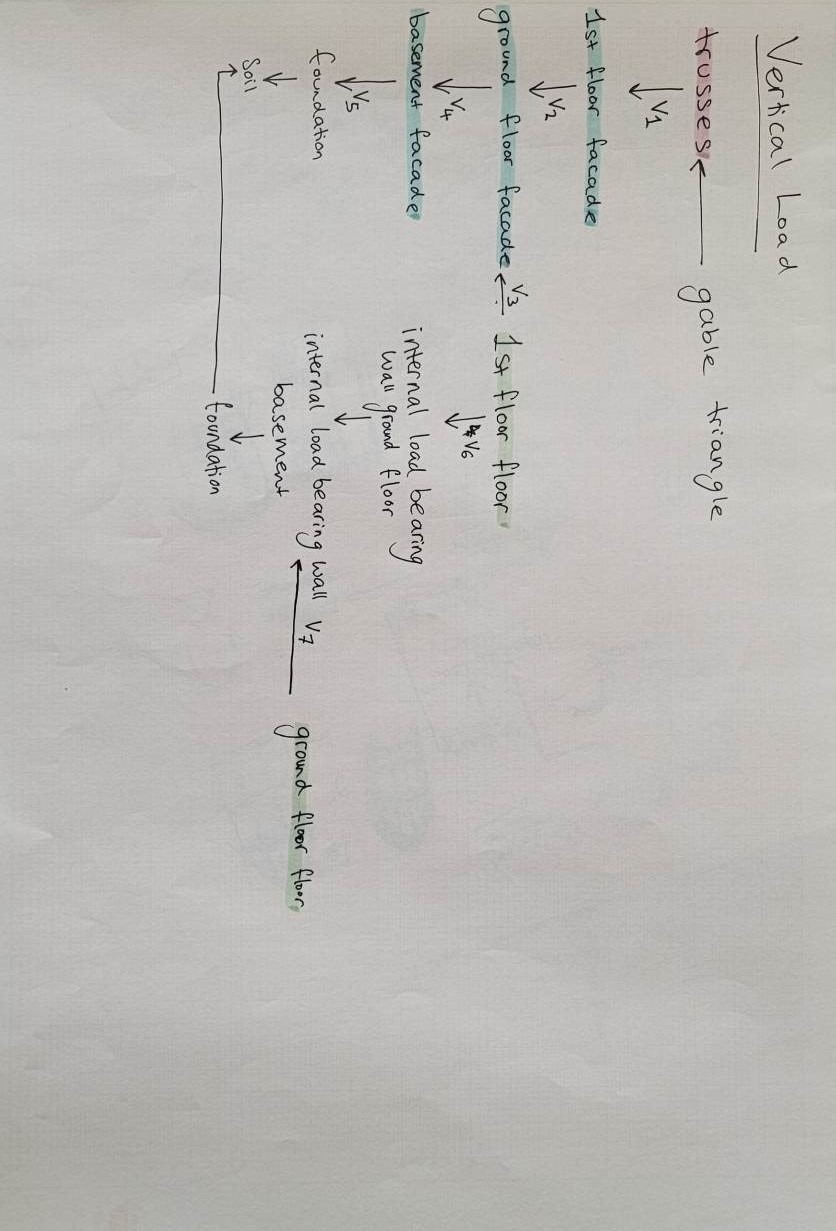 Vertical Load
trusses ← gable triangle
↓ V1
1st floor facade
↓ V2
ground floor facade ← V3 1st floor floor
↓ V4 ↓ V6
basement facade internal load bearing
wall ground floor
↓ V5 ↓
foundation internal load bearing wall ← V7 ground floor floor
↓ basement
Soil ↓
↑ foundation